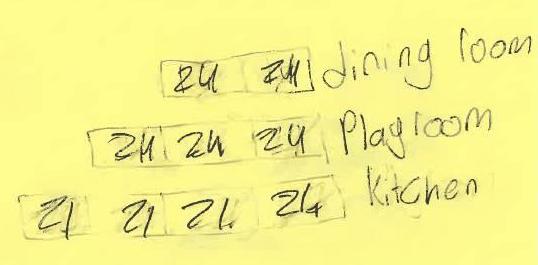 24 24 dining room
24 24 24 Playroom
21 21 21 24 Kitchen